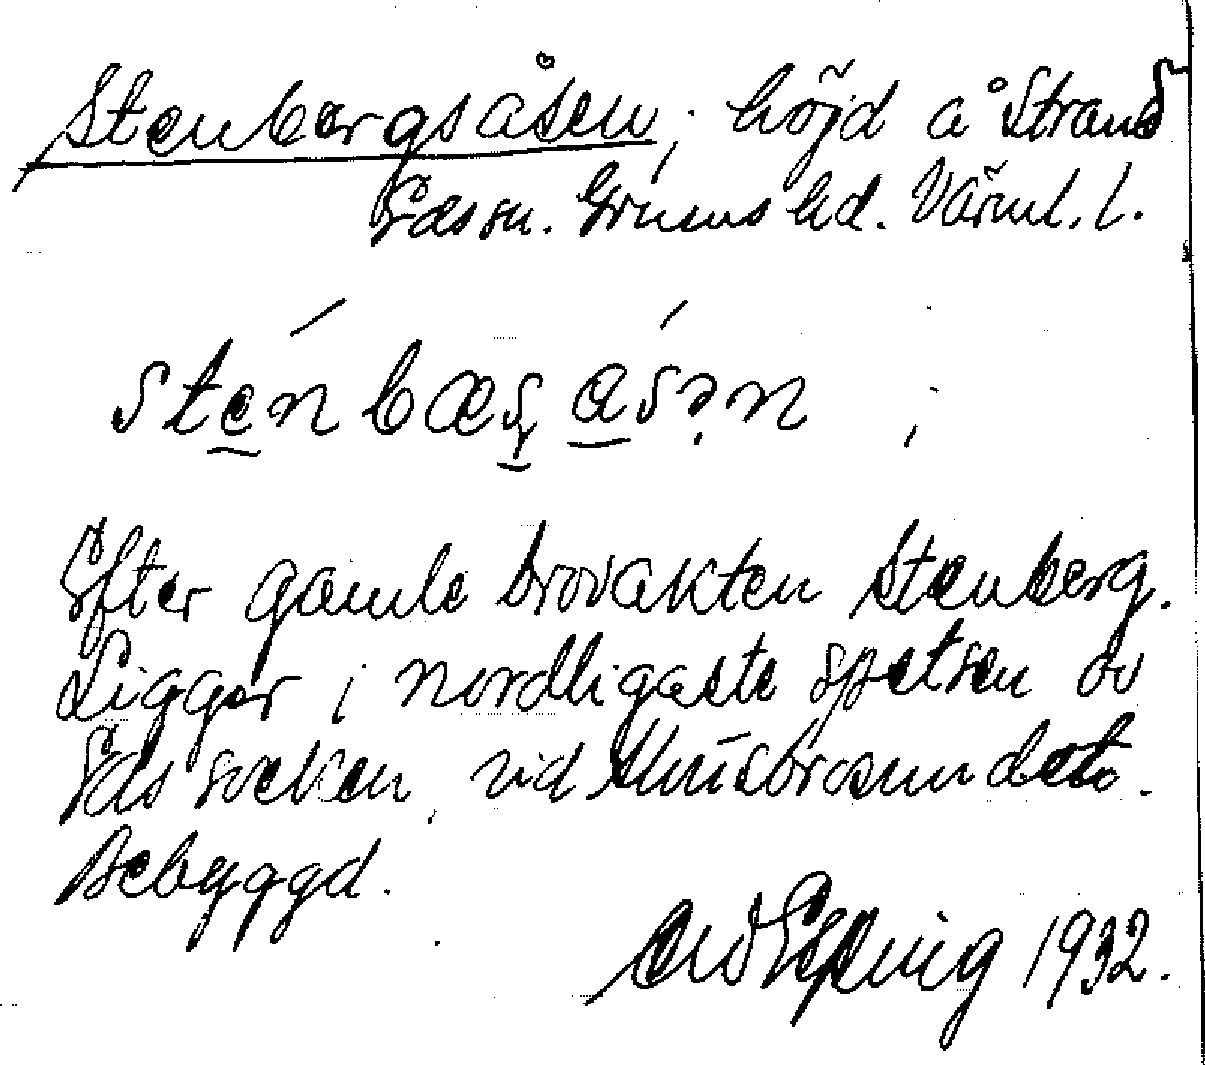 Stenbergsåsen, höjd å Strand
Eds sn. Grums hd. Värml. l.
stenbæsåsən,
Efter gamle brovakten Stenberg.
Ligger i nordligaste spetsen av
Eds socken, vid Slusbrosundet.
Bebyggd.
1932.